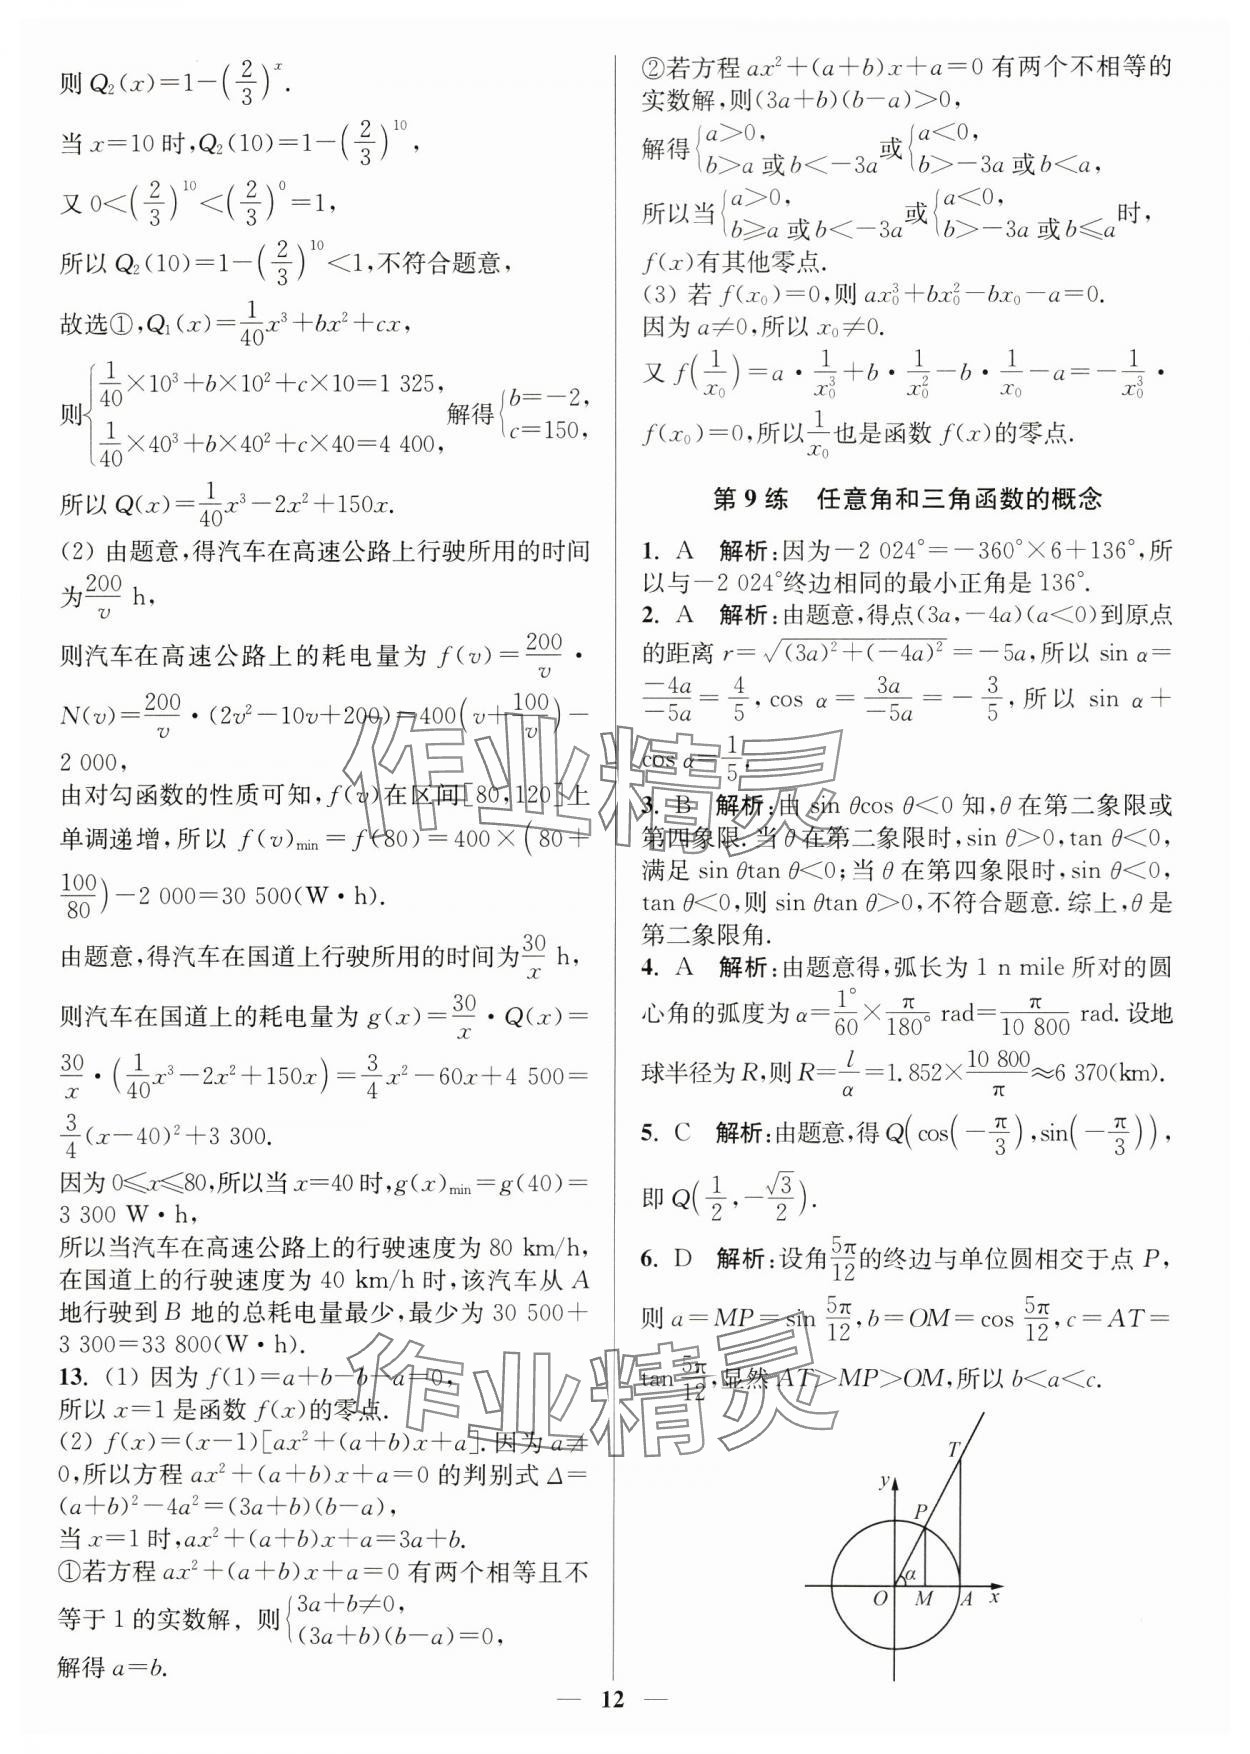 则 Q₂(x)=1-(2/3)^x.
当 x=10 时,Q₂(10)=1-(2/3)^10,
又 0<(2/3)^10<(2/3)^0=1,
所以 Q₂(10)=1-(2/3)^10<1,不符合题意,
故选①,Q₁(x)=1/40 x³+bx²+cx,
则{1/40×10³+b×10²+c×10=1 325, 1/40×40³+b×40²+c×40=4 400, 解得{b=-2, c=150,
所以 Q(x)=1/40 x³-2x²+150x.
(2) 由题意,得汽车在高速公路上行驶所用的时间
为200/v h,
则汽车在高速公路上的耗电量为 f(v)=200/v·
N(v)=200/v·(2v²-10v+200)=400(v+100/v)-
2 000,
由对勾函数的性质可知,f(v)在区间[80,120]上
单调递增,所以 f(v)min=f(80)=400×(80+
100/80)-2 000=30 500(W·h).
由题意,得汽车在国道上行驶所用的时间为30/x h,
则汽车在国道上的耗电量为 g(x)=30/x·Q(x)=
30/x·(1/40 x³-2x²+150x)=3/4 x²-60x+4 500=
3/4(x-40)²+3 300.
因为 0⩽x⩽80,所以当 x=40 时,g(x)min=g(40)=
3 300 W·h,
所以当汽车在高速公路上的行驶速度为 80 km/h,
在国道上的行驶速度为 40 km/h 时,该汽车从 A
地行驶到 B 地的总耗电量最少,最少为 30 500+
3 300=33 800(W·h).
13. (1) 因为 f(1)=a+b-b-a=0,
所以 x=1 是函数 f(x)的零点.
(2) f(x)=(x-1)[ax²+(a+b)x+a].因为 a≠
0,所以方程 ax²+(a+b)x+a=0 的判别式 Δ=
(a+b)²-4a²=(3a+b)(b-a),
当 x=1 时,ax²+(a+b)x+a=3a+b.
①若方程 ax²+(a+b)x+a=0 有两个相等且不
等于 1 的实数解, 则{3a+b≠0, (3a+b)(b-a)=0,
解得 a=b.
②若方程 ax²+(a+b)x+a=0 有两个不相等的
实数解,则(3a+b)(b-a)>0,
解得{a>0, b>a 或 b<-3a 或{a<0, b>-3a 或 b<a,
所以当{a>0, b⩾a 或 b<-3a 或{a<0, b>-3a 或 b⩽a 时,
f(x)有其他零点.
(3) 若 f(x₀)=0,则 ax₀³+bx₀²-bx₀-a=0.
因为 a≠0,所以 x₀≠0.
又 f(1/x₀)=a·1/x₀³+b·1/x₀²-b·1/x₀-a=-1/x₀³·
f(x₀)=0,所以1/x₀也是函数 f(x)的零点.
第 9 练 任意角和三角函数的概念
1. A 解析:因为-2 024°=-360°×6+136°,所
以与-2 024°终边相同的最小正角是 136°.
2. A 解析:由题意,得点(3a,-4a)(a<0)到原点
的距离 r=√((3a)²+(-4a)²)=-5a,所以 sin α=
-4a/-5a=4/5,cos α=3a/-5a=-3/5,所以 sin α+
cos α=1/5.
3. B 解析:由 sin θcos θ<0 知,θ 在第二象限或
第四象限.当 θ 在第二象限时,sin θ>0,tan θ<0,
满足 sin θtan θ<0;当 θ 在第四象限时,sin θ<0,
tan θ<0,则 sin θtan θ>0,不符合题意.综上,θ 是
第二象限角.
4. A 解析:由题意得,弧长为 1 n mile 所对的圆
心角的弧度为 α=1°/60×π/180° rad=π/10 800 rad.设地
球半径为 R,则 R=l/α=1.852×10 800/π≈6 370(km).
5. C 解析:由题意,得 Q(cos(-π/3),sin(-π/3)),
即 Q(1/2,-√3/2).
6. D 解析:设角5π/12的终边与单位圆相交于点 P,
则 a=MP=sin 5π/12,b=OM=cos 5π/12,c=AT=
tan 5π/12,显然 AT>MP>OM,所以 b<a<c.
T
y
P
α
O M A x
— 12 —
作业精灵
作业精灵